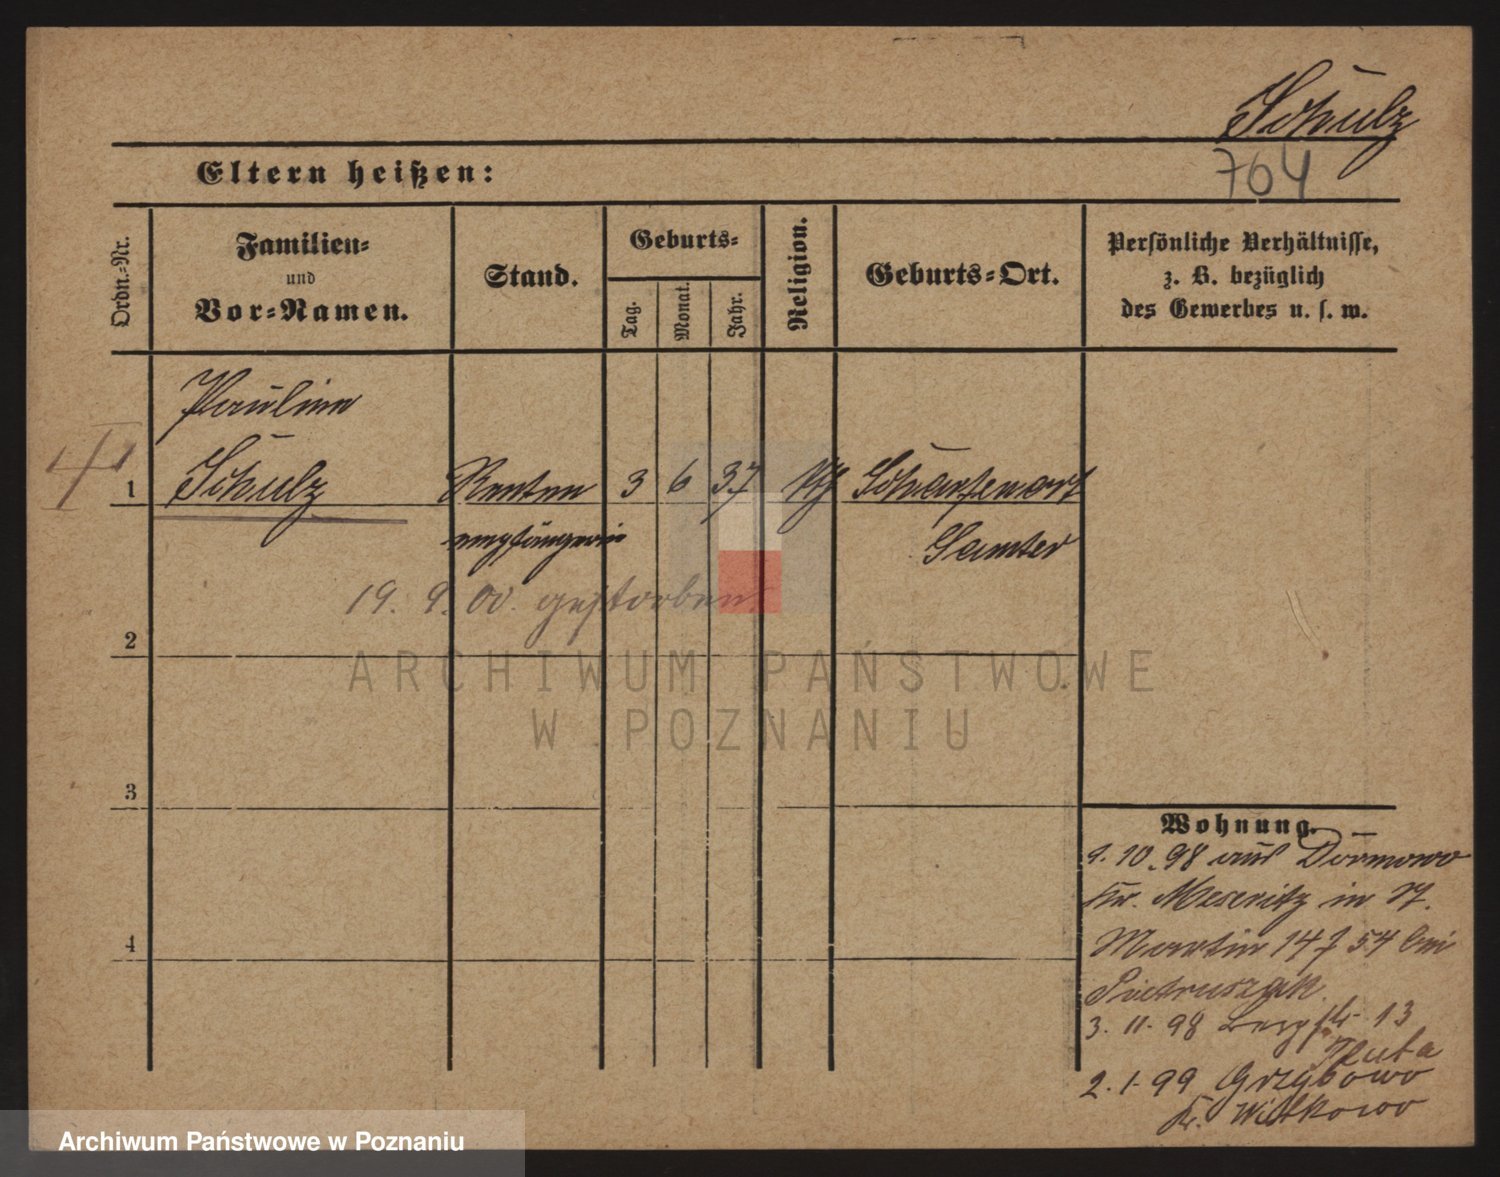 Schulz
764
Eltern heißen:
Ordn.-Nr.
Familien-
und
Vor-Namen.
Stand.
Geburts-
Tag.
Monat.
Jahr.
Religion.
Geburts-Ort.
Persönliche Verhältnisse,
z. B. bezüglich
des Gewerbes u. s. w.
Pauline
1 Schulz Renten 3 6 37 Scharfenort
empfängerin Samter
19. 9. 00. gestorben
2
3
4
Wohnung.
1. 10. 98 aus Dormowo
Kr. Meseritz in St.
Martin 54 bei
Pietruszak.
3. 11. 98 Bergstr. 13
Huta
2. 1. 99 Grzybowo
Kr. Witkowo
ARCHIWUM PAŃSTWOWE
W POZNANIU
Archiwum Państwowe w Poznaniu